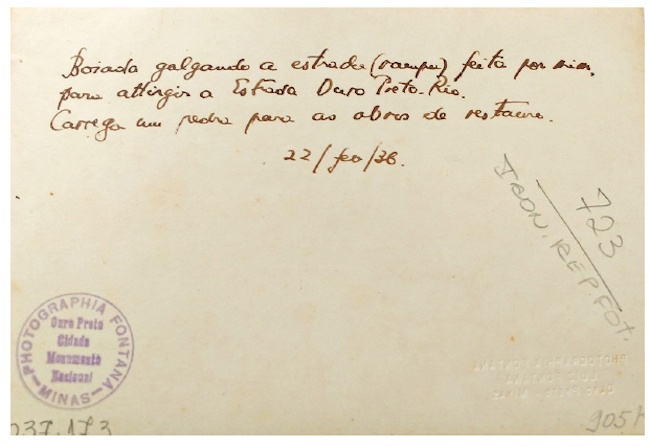 Boiada galgando a estrada (rampa) feita por mim,
para attingir a Estrada Ouro Preto-Rio.
Carrega um pedra para as obras de restauro.
22/fev/36.
723
ICON. REP. FOT.
PHOTOGRAPHIA FONTANA
Ouro Preto
Cidade
Monumento
Nacional
MINAS
PHOTOGRAPHIA FONTANA
LUIZ FONTANA
OURO PRETO - MINAS
037.173
905